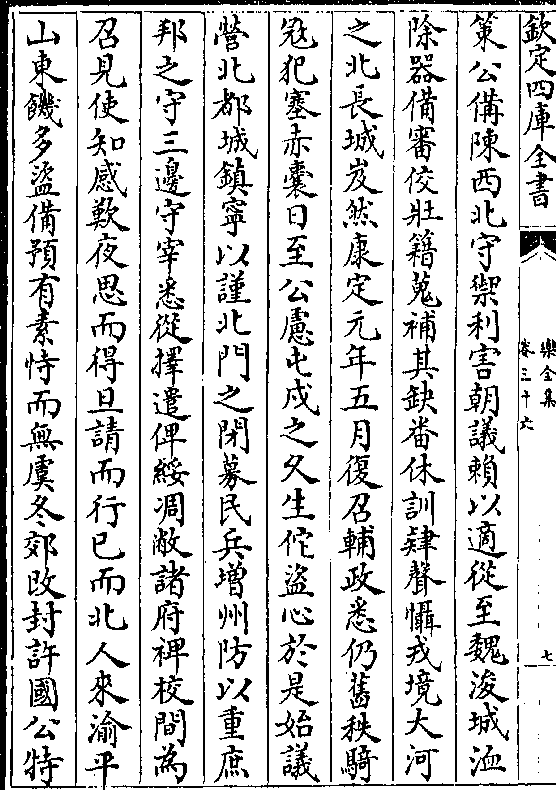 欽定四庫全書
樂全集
卷三十六
七
策公備陳西北守禦利害朝議賴以適從至魏浚城洫
除器備審佼壯籍蒐補其缺番休訓肄聲懾戎境大河
之北長城岌然康定元年五月復召輔政悉仍舊秩騎
冦犯塞赤囊日至公慮屯戍之久生佗盜心於是始議
營北都城鎮寧以謹北門之閉募民兵増州防以重庶
邦之守三邊守宰悉從擇遣俾綏凋敝諸府裨校間為
召見使知感歎夜思而得旦請而行已而北人來渝平
山東饑多盜備預有素恃而無虞冬郊改封許國公特